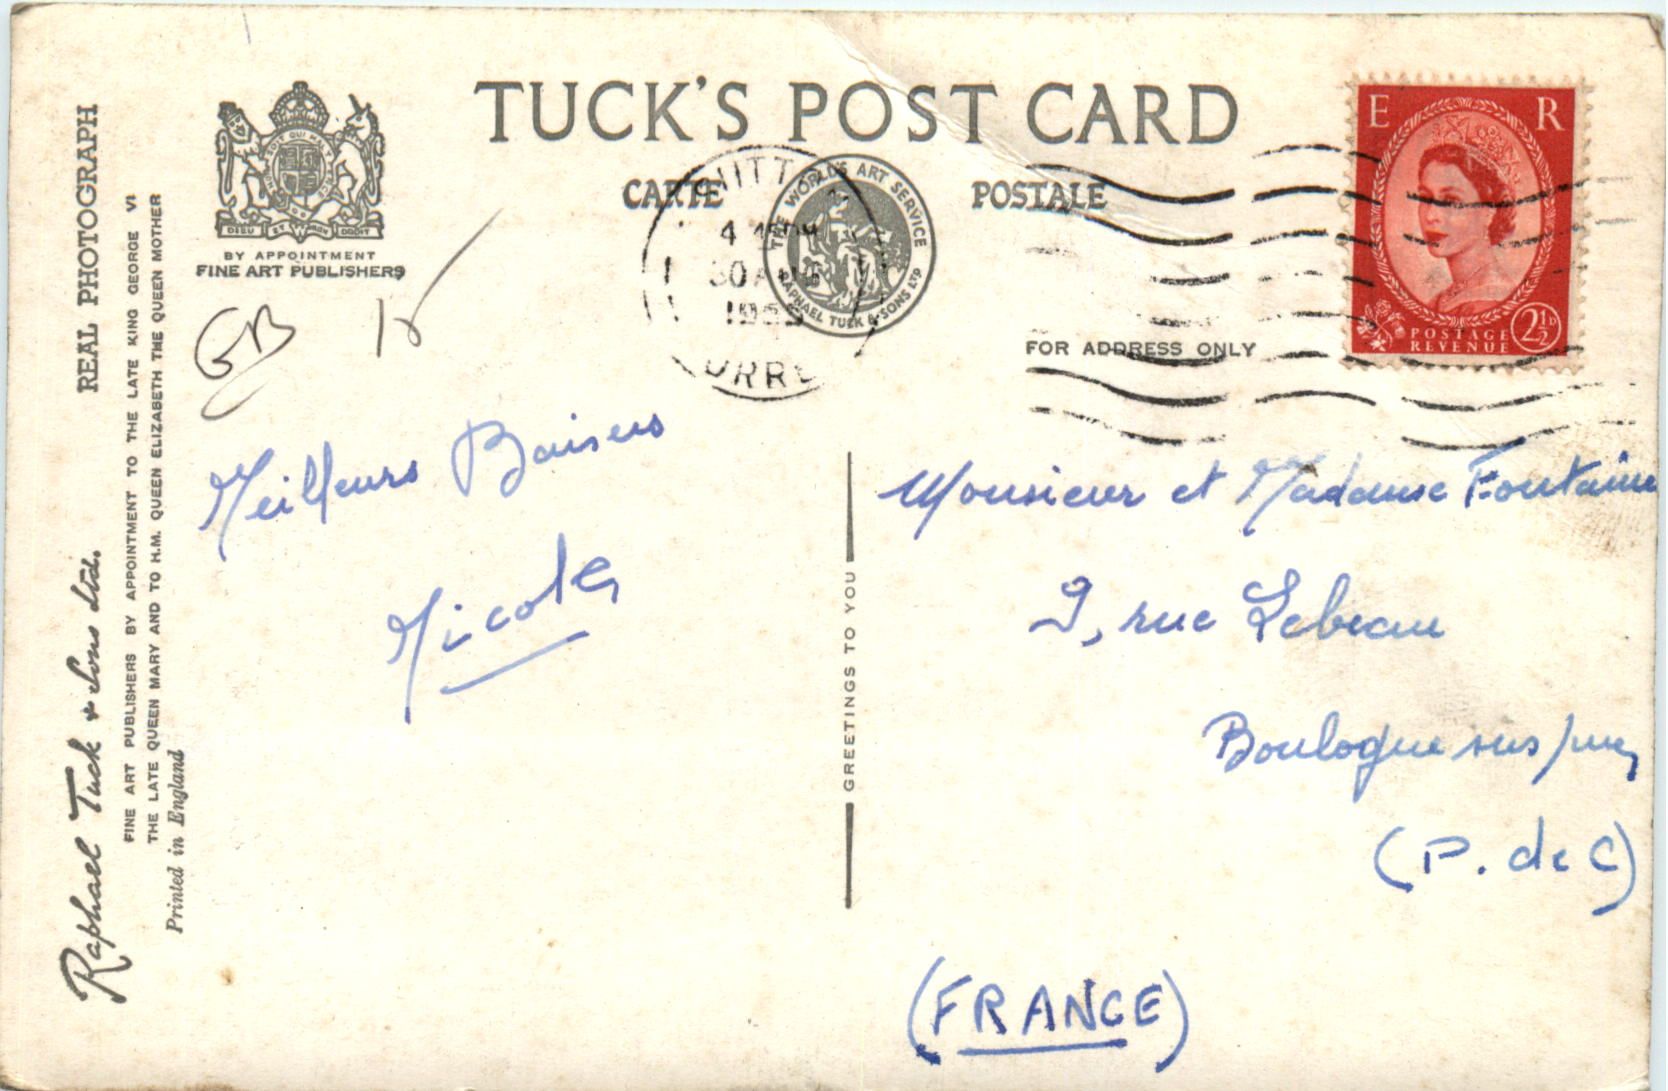 TUCK'S POST CARD
CARTE POSTALE
REAL PHOTOGRAPH
Raphael Tuck & Sons Ltd.
FINE ART PUBLISHERS BY APPOINTMENT TO THE LATE KING GEORGE VI
THE LATE QUEEN MARY AND TO H.M. QUEEN ELIZABETH THE QUEEN MOTHER
Printed in England
DIEU ET MON DROIT
BY APPOINTMENT
FINE ART PUBLISHERS
THE WORLD'S ART SERVICE
RAPHAEL TUCK & SONS LTD
30 AUG
E R
POSTAGE
REVENUE
2½D
FOR ADDRESS ONLY
GB
Meilleurs Baisers
Nicole
GREETINGS TO YOU
Monsieur et Madame Fontaine
9, rue Lebeau
Boulogne sur mer
(P. de C)
(FRANCE)